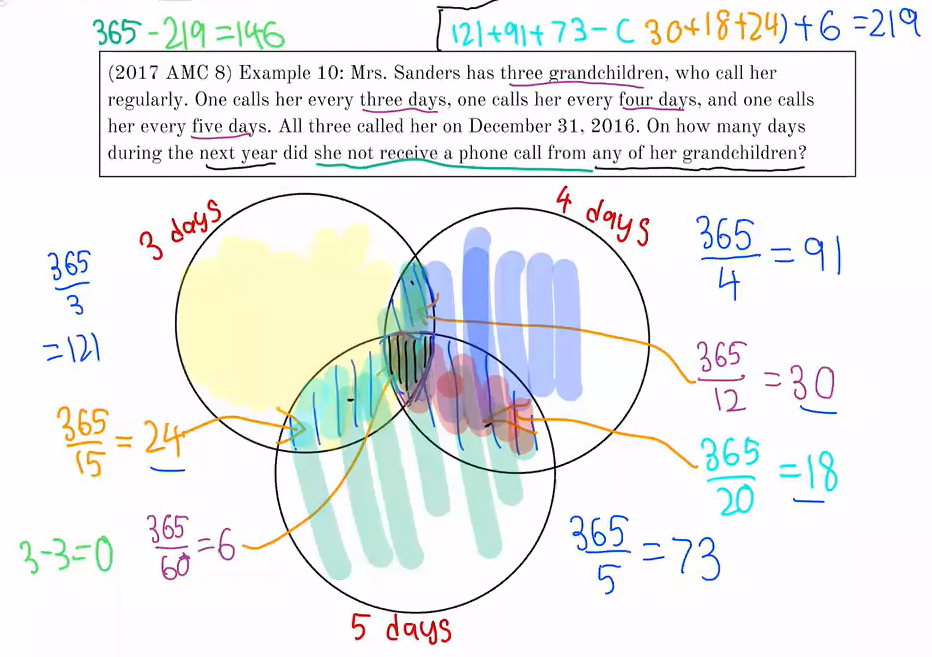 365 - 219 = 146
121 + 91 + 73 - ( 30 + 18 + 24) + 6 = 219
(2017 AMC 8) Example 10: Mrs. Sanders has three grandchildren, who call her
regularly. One calls her every three days, one calls her every four days, and one calls
her every five days. All three called her on December 31, 2016. On how many days
during the next year did she not receive a phone call from any of her grandchildren?
3 days
4 days
365/3
=121
365/4 = 91
365/12 = 30
365/15 = 24
365/20 = 18
3-3=0
365/60 = 6
365/5 = 73
5 days